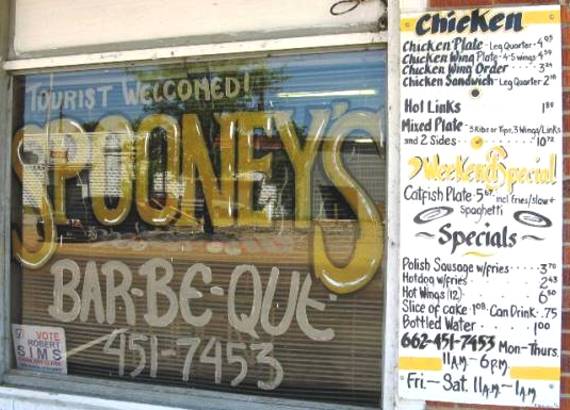 TOURIST WELCOMED!
SPOONEY'S
BAR-BE-QUE
451-7453
VOTE
ROBERT
SIMS
Chicken
Chicken Plate - Leg Quarter · 4.95
Chicken Wing Plate - 4-5 wings 4.59
Chicken Wing Order ···· 3.24
Chicken Sandwich - Leg Quarter 2.16
Hot Links 1.80
Mixed Plate - 3 Ribs or Tips, 3 Wings/Links
and 2 Sides ····· 10.72
Weekend Special
Catfish Plate · 5.67 incl fries/slaw+
Spaghetti
~ Specials ~
Polish Sausage w/fries ···· 3.70
Hotdog w/fries ······ 2.43
Hot Wings (12) ······ 6.50
Slice of cake · 1.08. Can Drink · .75
Bottled Water ···· 1.00
662-451-7453 Mon-Thurs.
11AM - 6PM
Fri.- Sat. 11AM-1AM